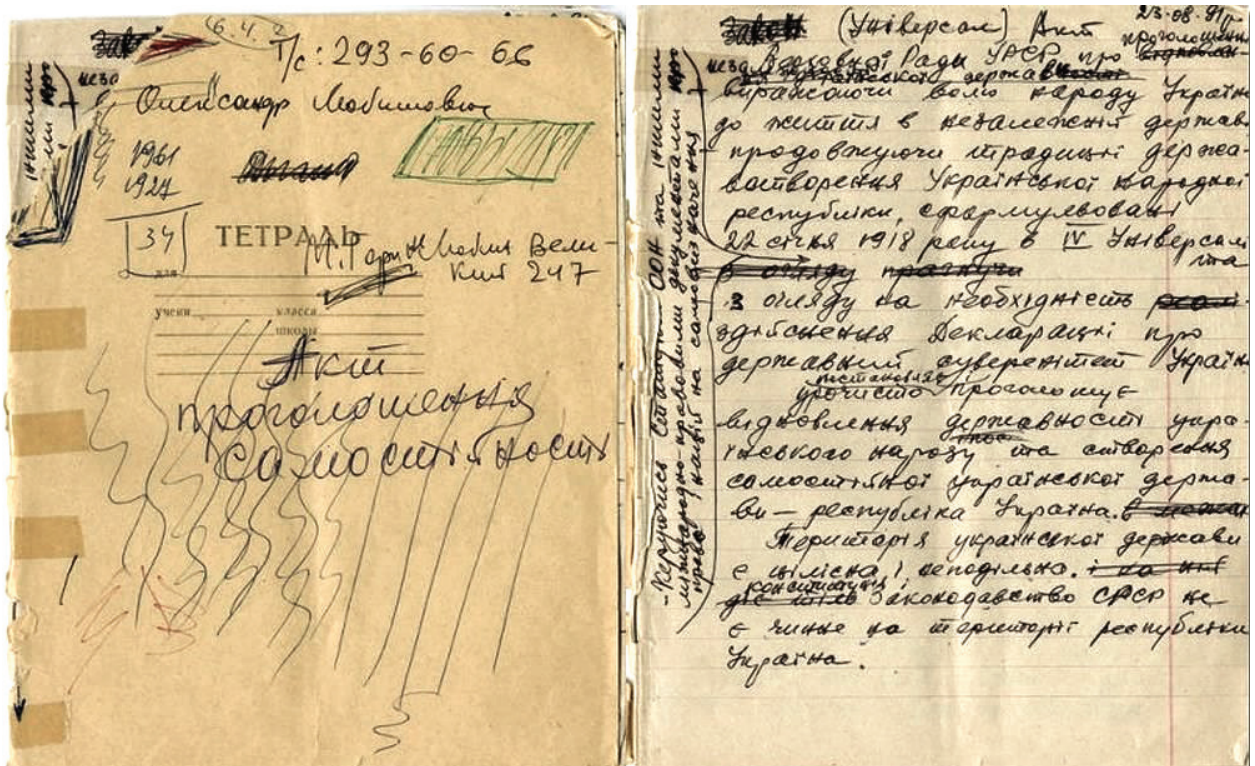 6.4.2
Т/с: 293-60-66
Олександр
1961
1927
34
ТЕТРАДЬ
М. Горинь Вели-
кий 247
для
учени класса
школы
Акт
проголошення
самостійності
23-08-91 р.
Закон (Універсал) Акт
проголошення
Верховної Ради УРСР про
неза української держав
виражаючи волю народу Україн
до життя в незалежній держав
продовжуючи традиції держа-
вотворення Української народної
республіки, сформульовані
22 січня 1918 року в IV Універсалі
та
з огляду на необхідність
здійснення Декларації про
державний суверенітет Україн
урочисто проголошує
відновлення державності укра-
їнського народу та створення
самостійної української держа-
ви — республіка Україна. в межах
Територія української держави
є цілісна і неподільна. і на ній
конституція і
діє Законодавство СРСР не
є чинне на території республіки
Україна.
- Керуючись Статутом ООН та іншими
міжнародно-правовими документами про
право націй на самовизначення